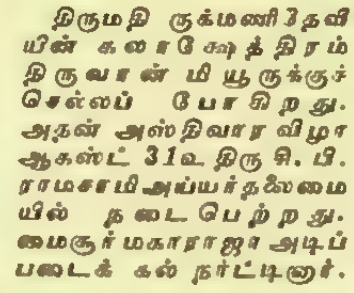 திருமதி ருக்மணிதேவி
யின் கலாக்ஷேத்திரம்
திருவான் மியூருக்குச்
செல்லப் போகிறது.
அதன் அஸ்திவார விழா
ஆகஸ்ட் 31உ திரு சி. பி.
ராமசாமி அய்யர்தலைமை
யில் நடைபெற்றது.
மைசூர் மகாராஜா அடிப்
படைக் கல் நாட்டினார்.